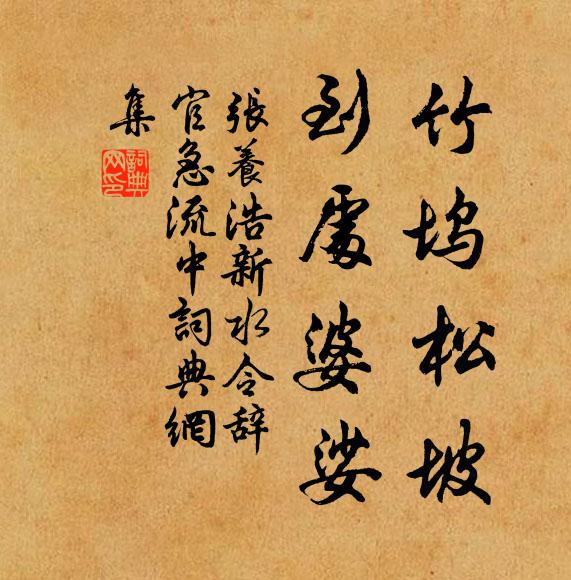 竹塢松坡
到處婆娑
張養浩新水令辞
官急流中詞典網
集
詞典網印